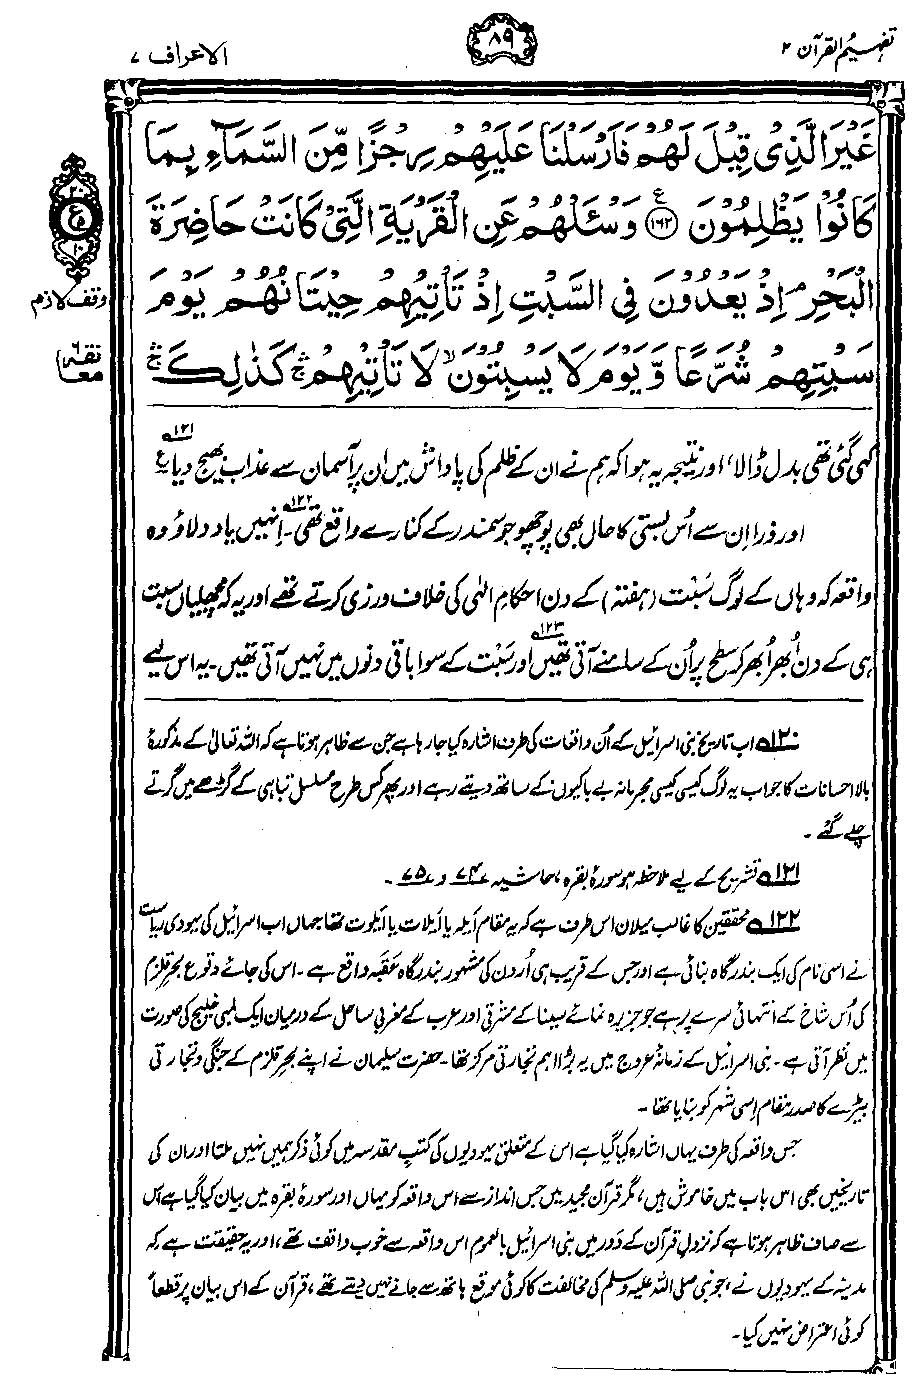 تفہیم القرآن ۲
۸۹
الاعراف ۷
غَيْرَ الَّذِىْ قِيْلَ لَهُمْ فَاَرْسَلْنَا عَلَيْهِمْ رِجْزًا مِّنَ السَّمَآءِ بِمَا
كَانُوْا يَظْلِمُوْنَ ۱۶۲ ع وَسْـَٔلْهُمْ عَنِ الْقَرْيَةِ الَّتِىْ كَانَتْ حَاضِرَةَ
الْبَحْرِ ۘ اِذْ يَعْدُوْنَ فِى السَّبْتِ اِذْ تَاْتِيْهِمْ حِيْتَانُهُمْ يَوْمَ
سَبْتِهِمْ شُرَّعًا وَّيَوْمَ لَا يَسْبِتُوْنَ ۙ لَا تَاْتِيْهِمْ ۛۚ كَذٰلِكَ ۛۚ
ع
وقف لازم
معا
کہی گئی تھی بدل ڈالا، اور نتیجہ یہ ہوا کہ ہم نے ان کے ظلم کی پاداش میں ان پر آسمان سے عذاب بھیج دیا ۱۲۱ ع
اور ذرا اِن سے اُس بستی کا حال بھی پوچھو جو سمندر کے کنارے واقع تھی ۱۲۲۔ اِنہیں یاد دلاؤ وہ
واقعہ کہ وہاں کے لوگ سَبْت (ہفتہ) کے دن احکامِ الٰہی کی خلاف ورزی کرتے تھے اور یہ کہ مچھلیاں سبت
ہی کے دن اُبھر اُبھر کر سطح پر اُن کے سامنے آتی تھیں ۱۲۳ اور سَبْت کے سوا باقی دنوں میں نہیں آتی تھیں۔ یہ اس لیے
۱۲۰ اب تاریخ بنی اسرائیل کے اُن واقعات کی طرف اشارہ کیا جا رہا ہے جن سے ظاہر ہوتا ہے کہ اللہ تعالیٰ کے مذکورۂ
بالا احسانات کا جواب یہ لوگ کیسی کیسی مجرمانہ بے باکیوں کے ساتھ دیتے رہے اور پھر کس طرح مسلسل تباہی کے گڑھے میں گرتے
چلے گئے۔
۱۲۱ تشریح کے لیے ملاحظہ ہو سورۂ بقرہ، حاشیہ ۷۴ و ۷۵۔
۱۲۲ محققین کا غالب میلان اس طرف ہے کہ یہ مقام اَیلہ یا اَیلات یا اَیلوت تھا جہاں اب اسرائیل کی یہودی ریاست
نے اسی نام کی ایک بندرگاہ بنائی ہے اور جس کے قریب ہی اُردن کی مشہور بندرگاہ عَقَبہ واقع ہے۔ اس کی جائے وقوع بحرِ قلزم
کی اُس شاخ کے انتہائی سرے پر ہے جو جزیرہ نمائے سینا کے مشرقی اور عرب کے مغربی ساحل کے درمیان ایک لمبی خلیج کی صورت
میں نظر آتی ہے۔ بنی اسرائیل کے زمانۂ عروج میں یہ بڑا اہم تجارتی مرکز تھا۔ حضرت سلیمان نے اپنے بحرِ قلزم کے جنگی و تجارتی
بیڑے کا صدر مقام اِسی شہر کو بنایا تھا۔
جس واقعہ کی طرف یہاں اشارہ کیا گیا ہے اس کے متعلق یہودیوں کی کتبِ مقدسہ میں کوئی ذکر ہمیں نہیں ملتا اور ان کی
تاریخیں بھی اس باب میں خاموش ہیں، مگر قرآن مجید میں جس انداز سے اس واقعہ کو یہاں اور سورۂ بقرہ میں بیان کیا گیا ہے اس
سے صاف ظاہر ہوتا ہے کہ نزولِ قرآن کے دَور میں بنی اسرائیل بالعموم اس واقعہ سے خوب واقف تھے، اور یہ حقیقت ہے کہ
مدینہ کے یہودیوں نے، جو نبی صلی اللہ علیہ وسلم کی مخالفت کا کوئی موقع ہاتھ سے جانے نہیں دیتے تھے، قرآن کے اس بیان پر قطعاً
کوئی اعتراض نہیں کیا۔